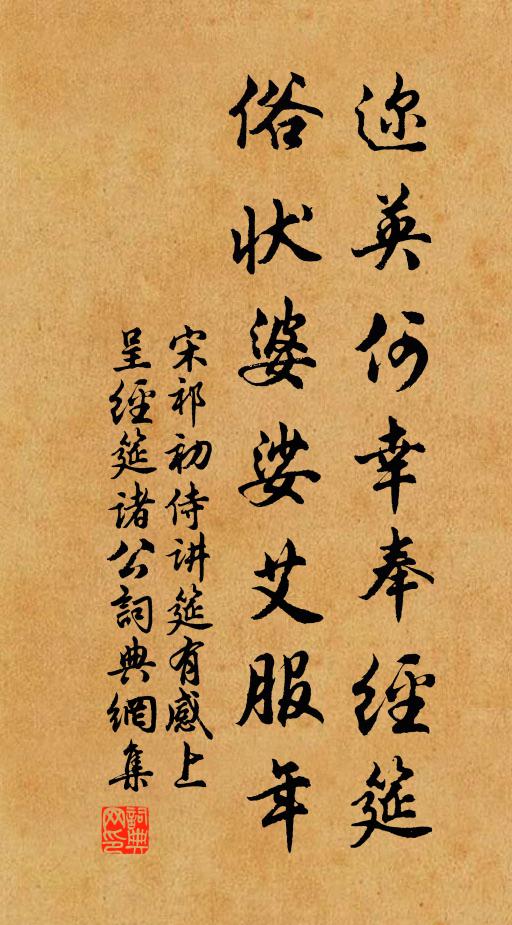 迩英何幸奉経筵
俗状婆娑艾服年
宋祁初侍讲筵有感上
呈経筵诸公詞典網集
詞典网印